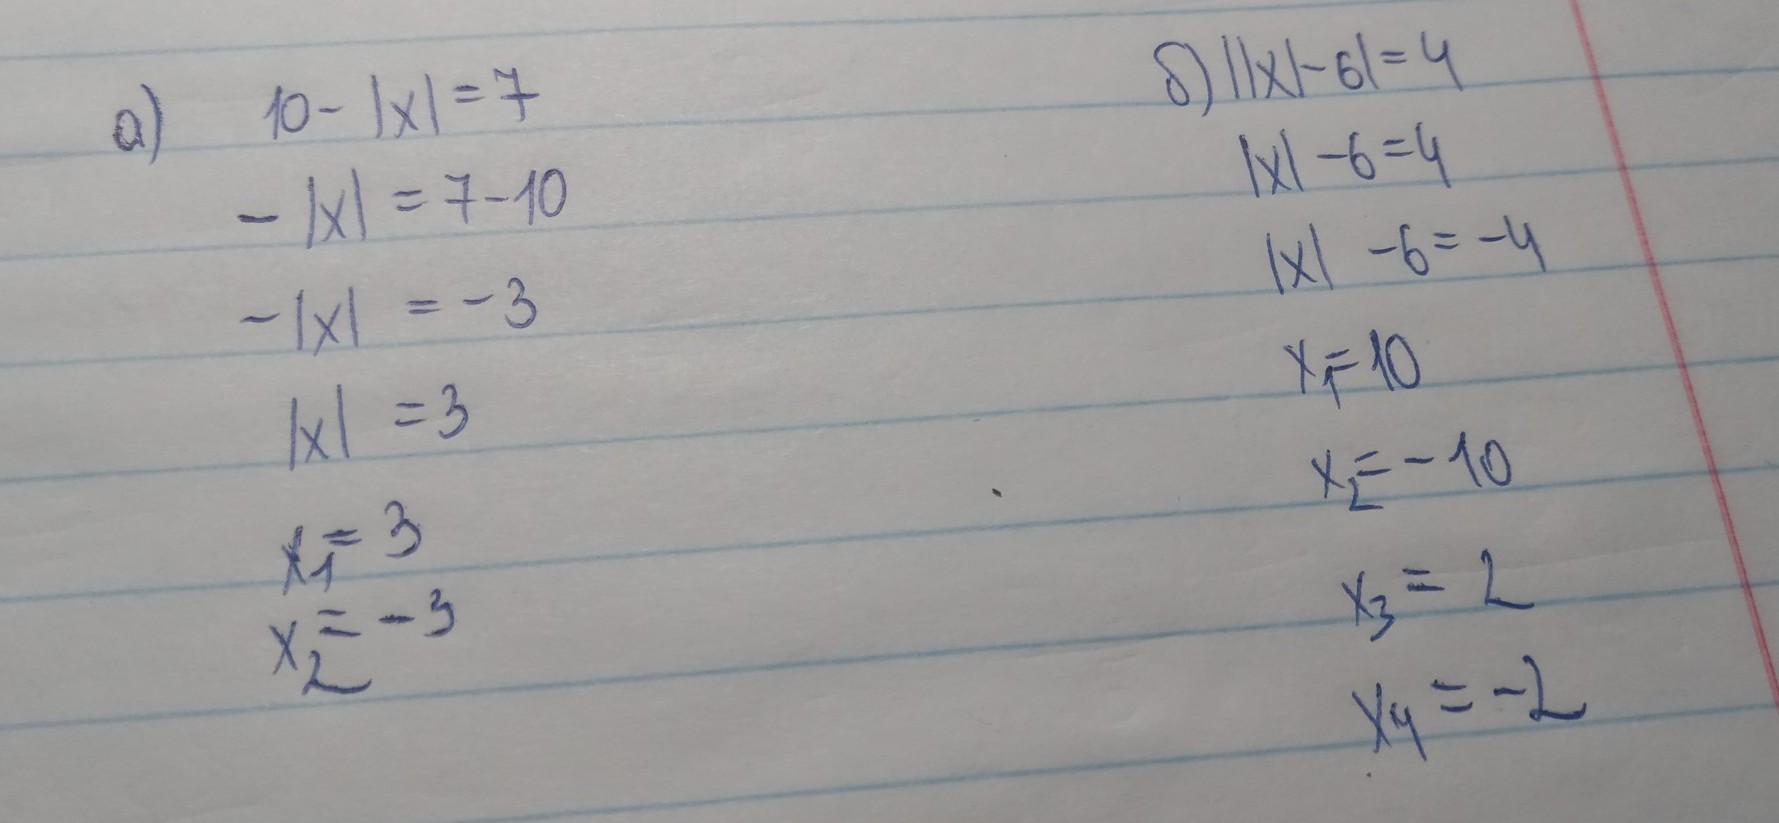 а) 10 - |x| = 7
- |x| = 7 - 10
- |x| = - 3
|x| = 3
x₁ = 3
x₂ = - 3
б) ||x| - 6| = 4
|x| - 6 = 4
|x| - 6 = - 4
x₁ = 10
x₂ = - 10
x₃ = 2
x₄ = - 2